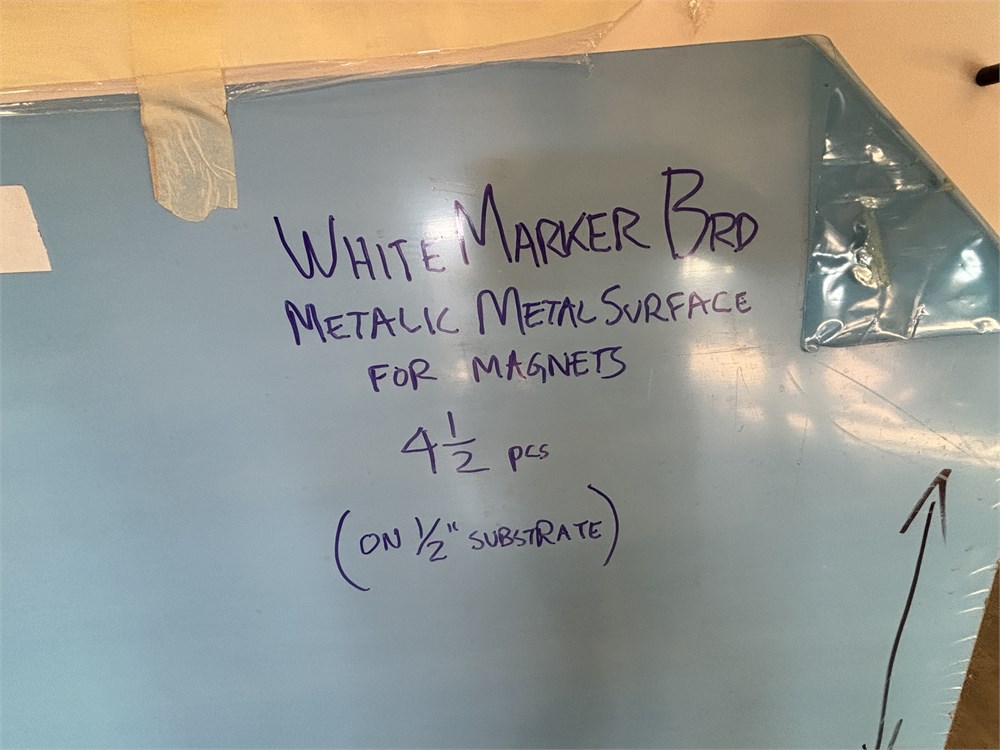 WHITE MARKER BRD
METALIC METAL SURFACE
FOR MAGNETS
4 1/2 pcs
(ON 1/2" SUBSTRATE)